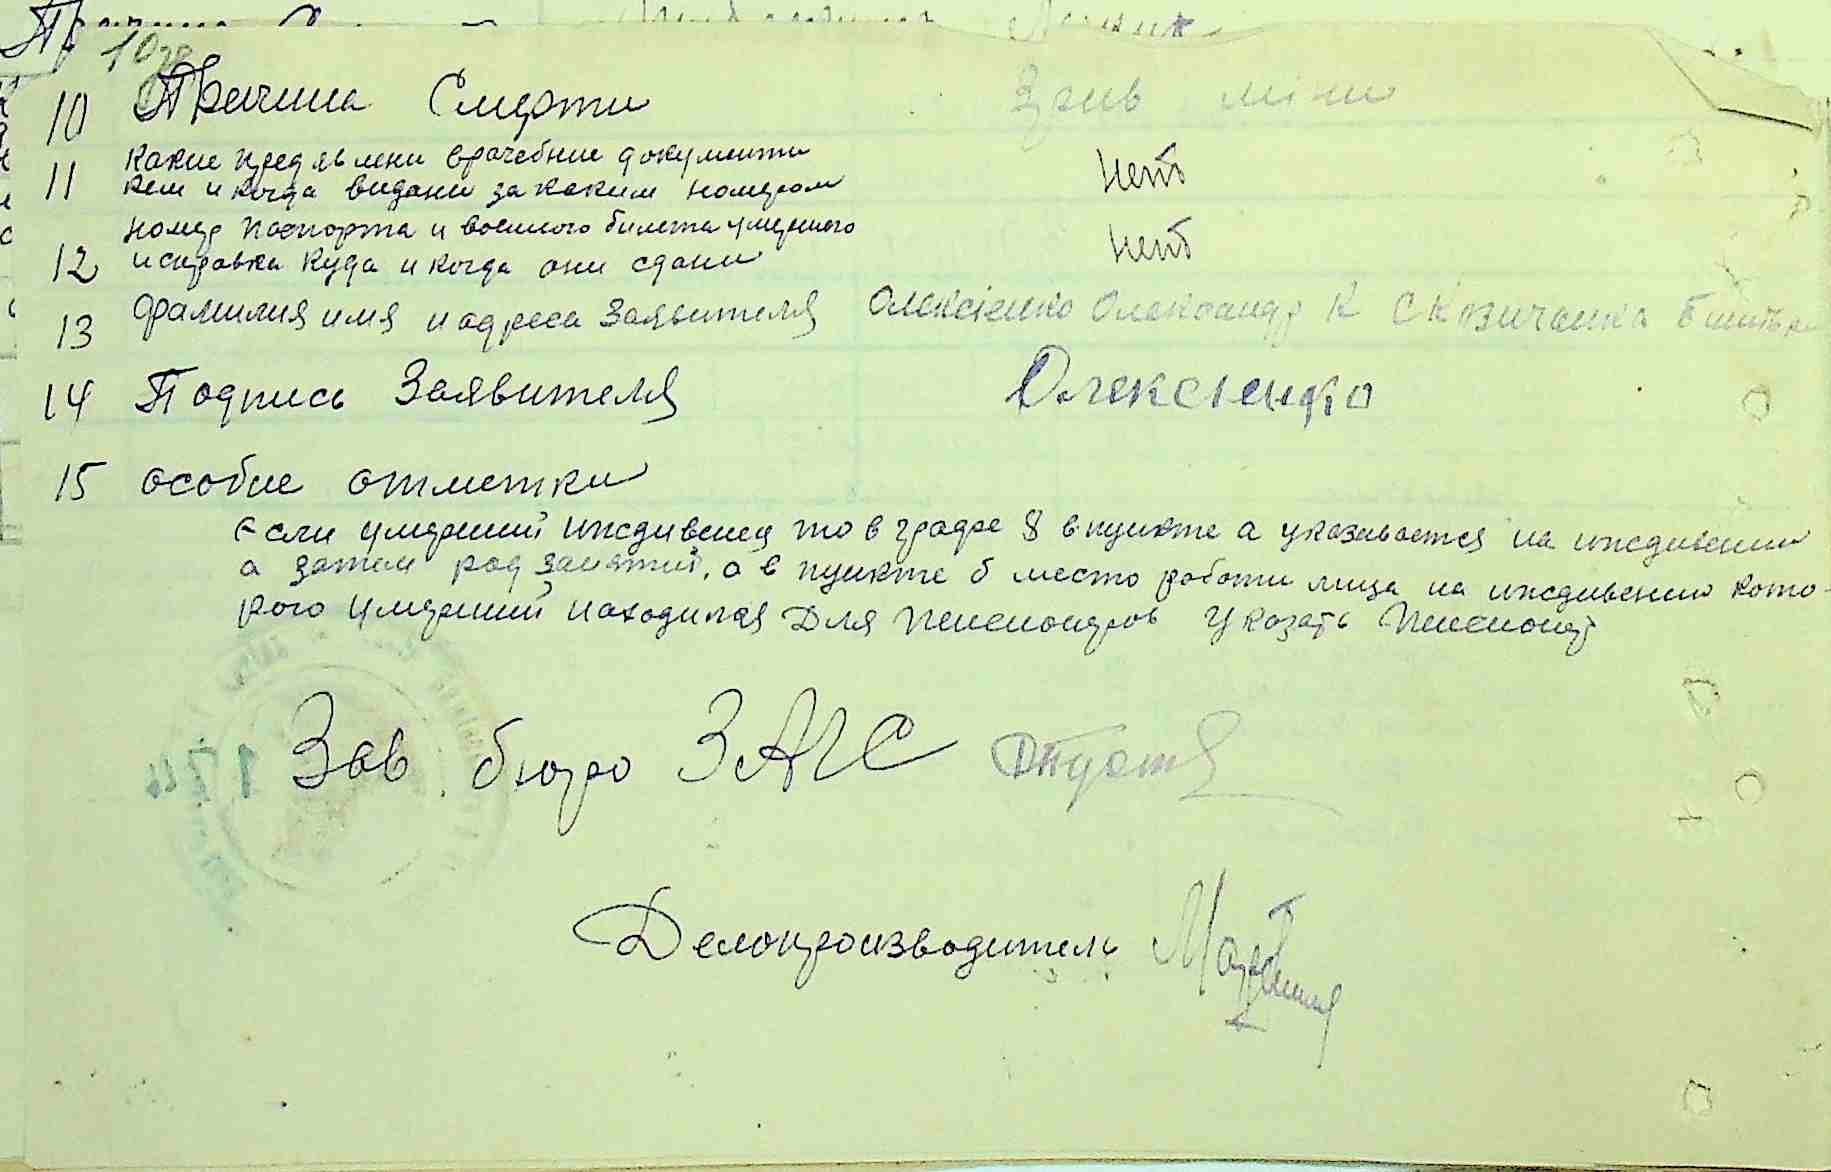 10 Причина Смерти Зрив міни
11 Какие предявлени врачебние документи
кем и когда видани за каким номером нет
номер паспорта и военного билета умершого
12 и справка куда и когда они сдани нет
13 фамилия имя и адреса Заявителя Олексієнко Олександр К С Козичанка
14 Подпись Заявителя Олексієнко
15 особие отметки
Если умерший иждивенец то в графе 8 в пункте а указивается на иждивении
а затем род занятий, а в пункте б место работи лица на иждивению кото-
рого умерший находился Для пенсионеров Указать пенсионер
Зав. бюро ЗАГС
Делопроизводитель